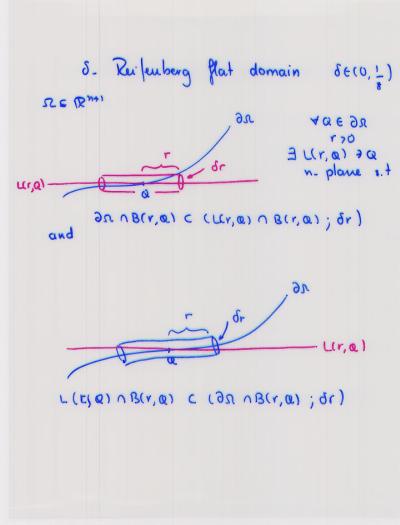 δ- Reifenberg flat domain δ∈(0, 1/8)
Ω ⊆ ℝⁿ⁺¹
∂Ω
∀Q ∈ ∂Ω
r > 0
∃ L(r,Q) ∋ Q
n-plane s.t
r
δr
L(r,Q)
Q
∂Ω ∩ B(r,Q) ⊂ (L(r,Q) ∩ B(r,Q) ; δr)
and
∂Ω
r
δr
L(r,Q)
Q
L(r,Q) ∩ B(r,Q) ⊂ (∂Ω ∩ B(r,Q) ; δr)